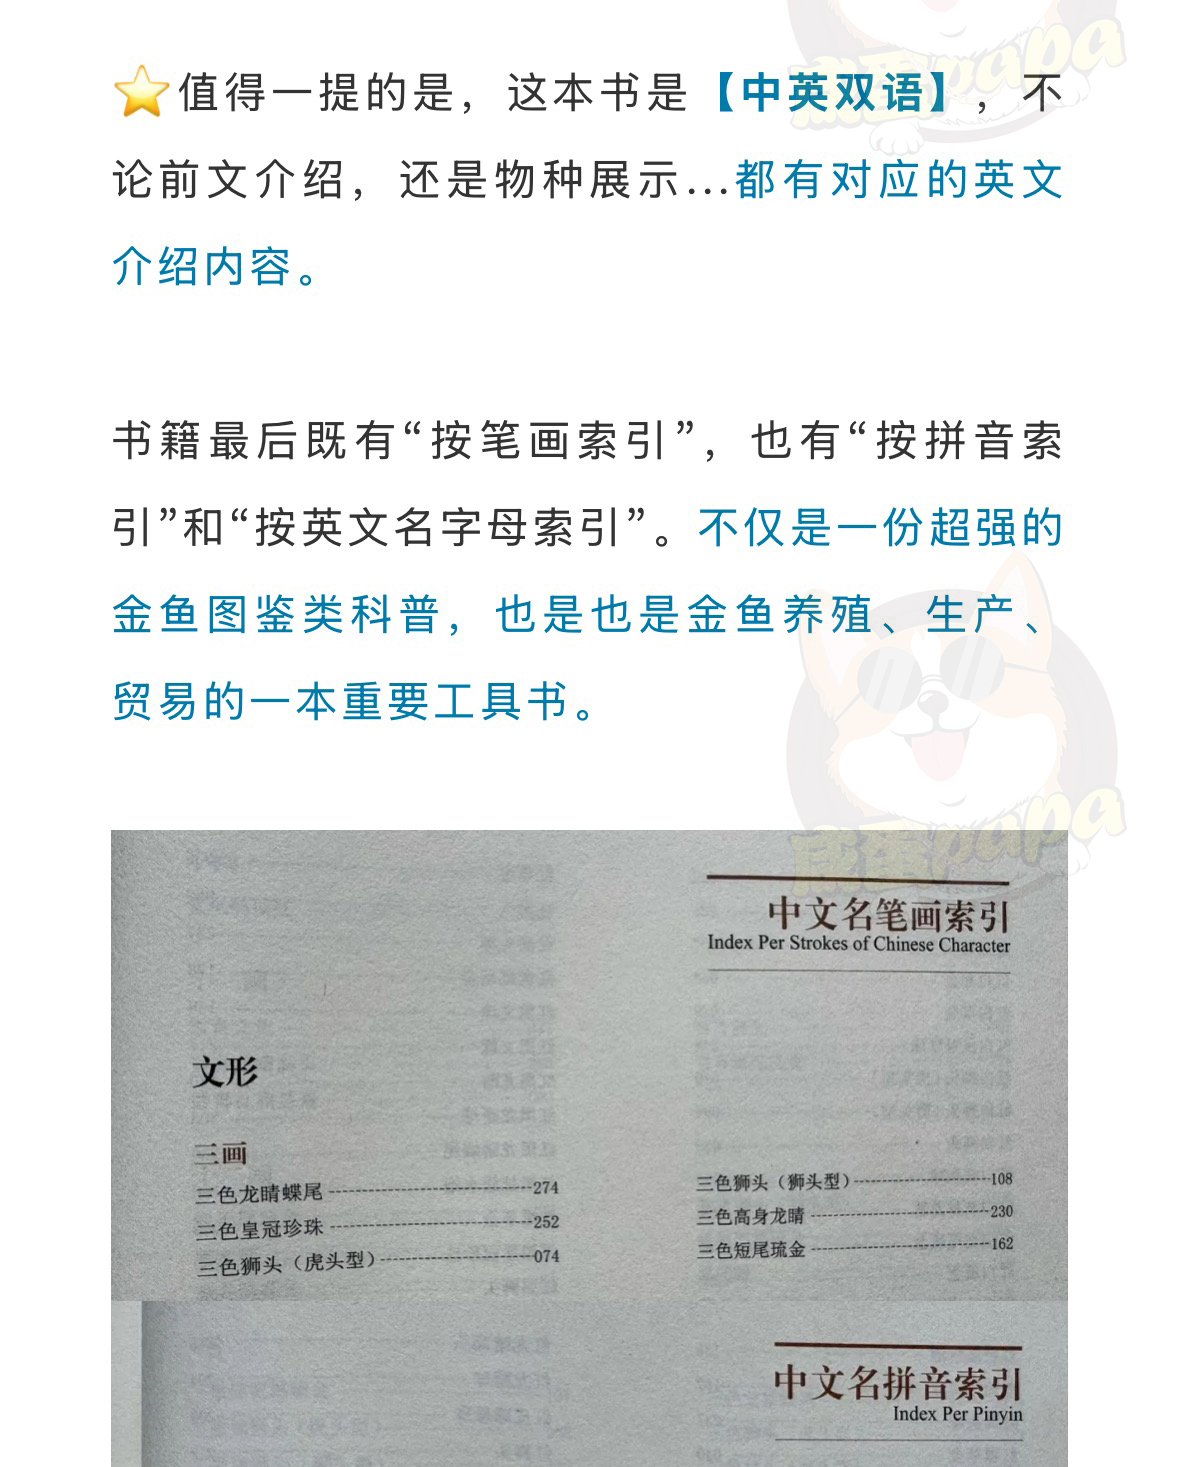 ⭐值得一提的是，这本书是【中英双语】，不
论前文介绍，还是物种展示...都有对应的英文
介绍内容。
书籍最后既有“按笔画索引”，也有“按拼音索
引”和“按英文名字母索引”。不仅是一份超强的
金鱼图鉴类科普，也是也是金鱼养殖、生产、
贸易的一本重要工具书。
咸蛋papa
咸蛋papa
中文名笔画索引
Index Per Strokes of Chinese Character
文形
三画
三色龙睛蝶尾 274
三色皇冠珍珠 252
三色狮头（虎头型） 074
三色狮头（狮头型） 108
三色高身龙睛 230
三色短尾琉金 162
中文名拼音索引
Index Per Pinyin